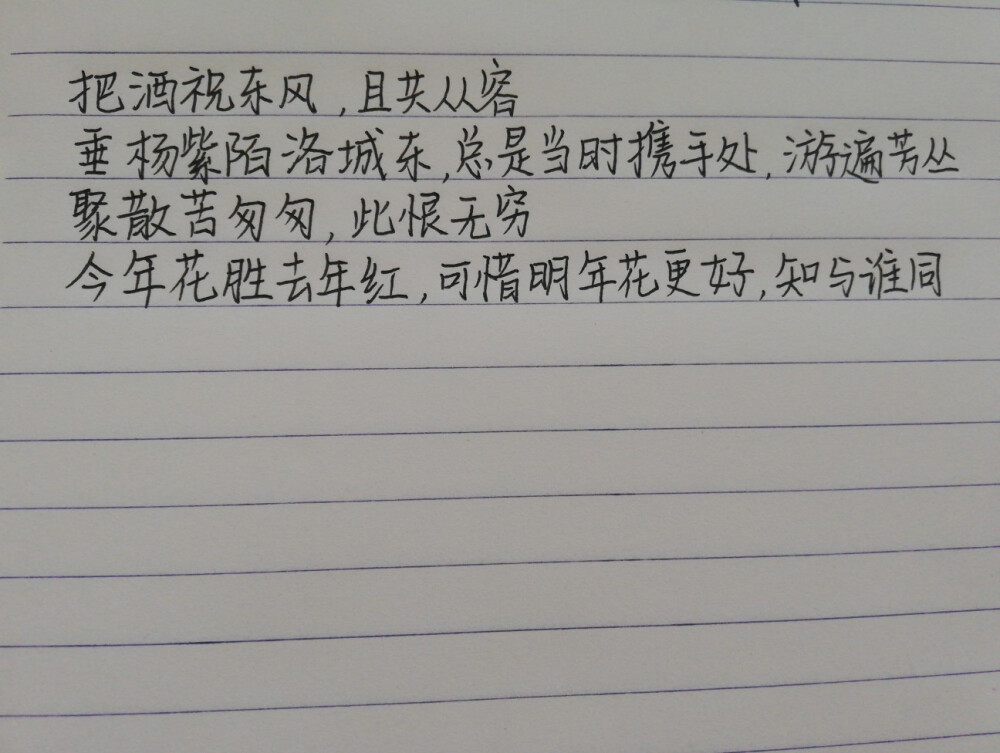 把酒祝东风,且共从容
垂杨紫陌洛城东,总是当时携手处,游遍芳丛
聚散苦匆匆,此恨无穷
今年花胜去年红,可惜明年花更好,知与谁同